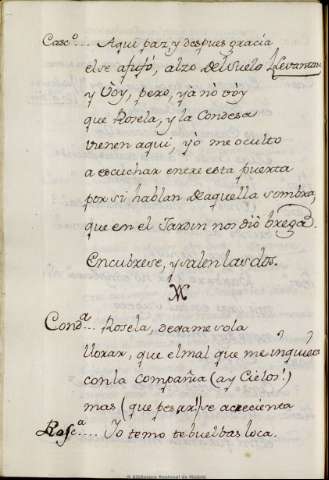 Casc.º... Aqui paz, y despues gracia,
el se afufó, alzo del suelo
y Voy, pero, ya no voy
que Rosela, y la Condesa
vienen aqui, yo me oculto
a escuchar entre esta puerta
por si hablan de aquella sombra,
que en el Jardin nos dió brega.
Encubrese, y salen las dos.
Cond.ª... Rosela, dexame sola
llorar, que el mal que me inquieta
con la compañia (ay Cielos!)
mas (que pesar!) se acrecienta
Ros.ª.... Yo temo te buelbas loca.
© Biblioteca Nacional de España